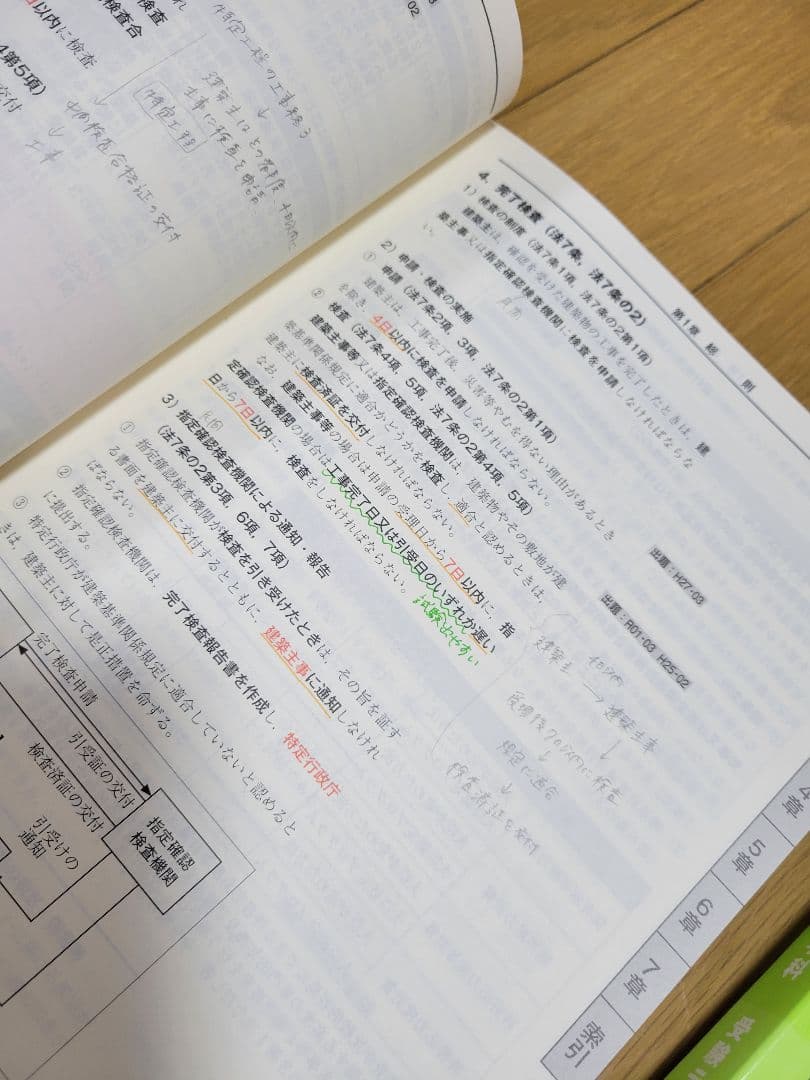 02
検査
検査合
以内に検査
4第5項)
交付
特定工程の工事終う
↓
建築主はその都度、4日以内に
主事に検査を申請
特定工程
↓
中間検査合格証の交付
↓
工事
第1章 総 則
4. 完了検査（法7条，法7条の2）
1）検査の制度（法7条1項，法7条の2第1項）
建築主は，確認を受けた建築物の工事を完了したときは，建
築主事又は指定確認検査機関に検査を申請しなければならな
い。
2）申請・検査の実施
① 申請（法7条2項，3項，法7条の2第1項）
建築主は，工事完了後，災害等やむを得ない理由があるとき
を除き，4日以内に検査を申請しなければならない。
② 検査（法7条4項，5項，法7条の2第4項，5項）
建築主事等又は指定確認検査機関は，建築物やその敷地が建
築基準関係規定に適合かどうかを検査し，適合と認めるときは，
建築主に検査済証を交付しなければならない。
なお，建築主事等の場合は申請の受理日から7日以内に，指
定確認検査機関の場合は工事完了日又は引受日のいずれか遅い
日から7日以内に，検査をしなければならない。
試験出やすい
出題：H27-03
出題：R01-03 H25-02
建築主 4日以内 → 建築主事
↓
受理後7日以内に検査
↓
規定に適合
↓
検査済証を交付
3）指定確認検査機関による通知・報告
（法7条の2第3項，6項，7項）
① 指定確認検査機関が検査を引き受けたときは，その旨を証す
る書面を建築主に交付するとともに，建築主事に通知しなけれ
ばならない。
② 指定確認検査機関は，完了検査報告書を作成し，特定行政庁
に提出する。
③ 特定行政庁が建築基準関係規定に適合していないと認めると
きは，建築主に対して是正措置を命ずる。
完了検査申請
引受証の交付
検査済証の交付
引受けの
通知
指定確認
検査機関
4章
5章
6章
7章
索引